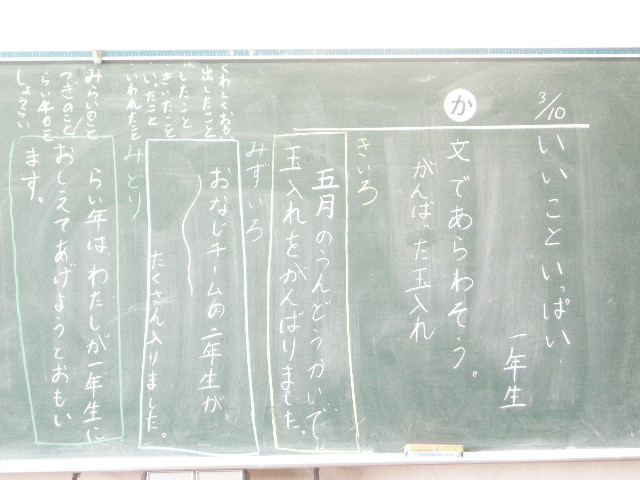 3/10
いいこといっぱい
一年生
か
文であらわそう。
がんばった玉入れ
きいろ
五月のうんどうかいで、
玉入れをがんばりました。
みずいろ
おなじチームの二年生が
たくさん入りました。
みどり
らい年は、わたしが一年生に
おしえてあげようとおもい
ます。
くわしくおもい
出したこと
したこと
きいたこと
いったこと
いわれたこと
みらいのこと
つぎのこと
らい年のこと
しょうらい